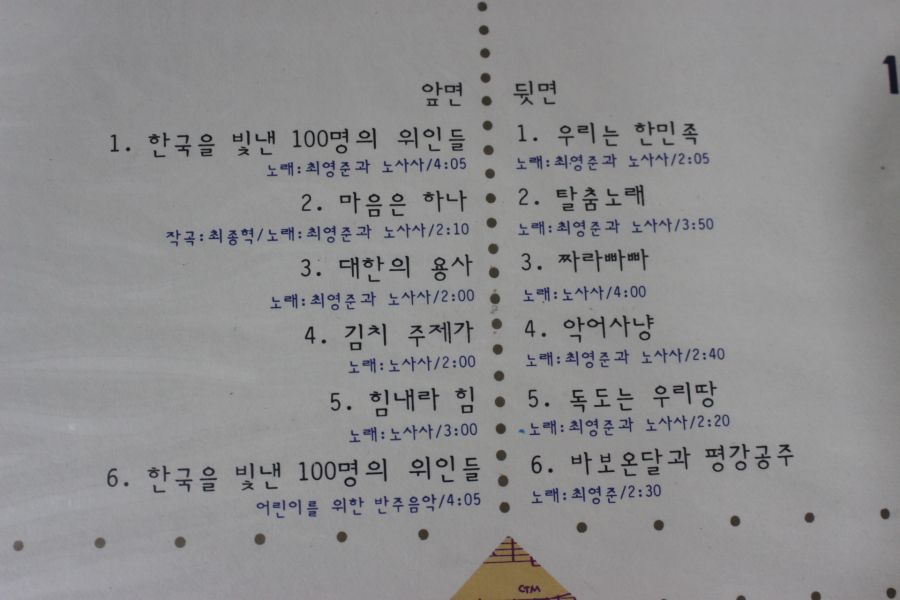 앞면
1. 한국을 빛낸 100명의 위인들
노래:최영준과 노사사/4:05
2. 마음은 하나
작곡:최종혁/노래:최영준과 노사사/2:10
3. 대한의 용사
노래:최영준과 노사사/2:00
4. 김치 주제가
노래:노사사/2:00
5. 힘내라 힘
노래:노사사/3:00
6. 한국을 빛낸 100명의 위인들
어린이를 위한 반주음악/4:05
뒷면
1. 우리는 한민족
노래:최영준과 노사사/2:05
2. 탈춤노래
노래:최영준과 노사사/3:50
3. 짜라빠빠
노래:노사사/4:00
4. 악어사냥
노래:최영준과 노사사/2:40
5. 독도는 우리땅
노래:최영준과 노사사/2:20
6. 바보온달과 평강공주
노래:최영준/2:30
1
CTM